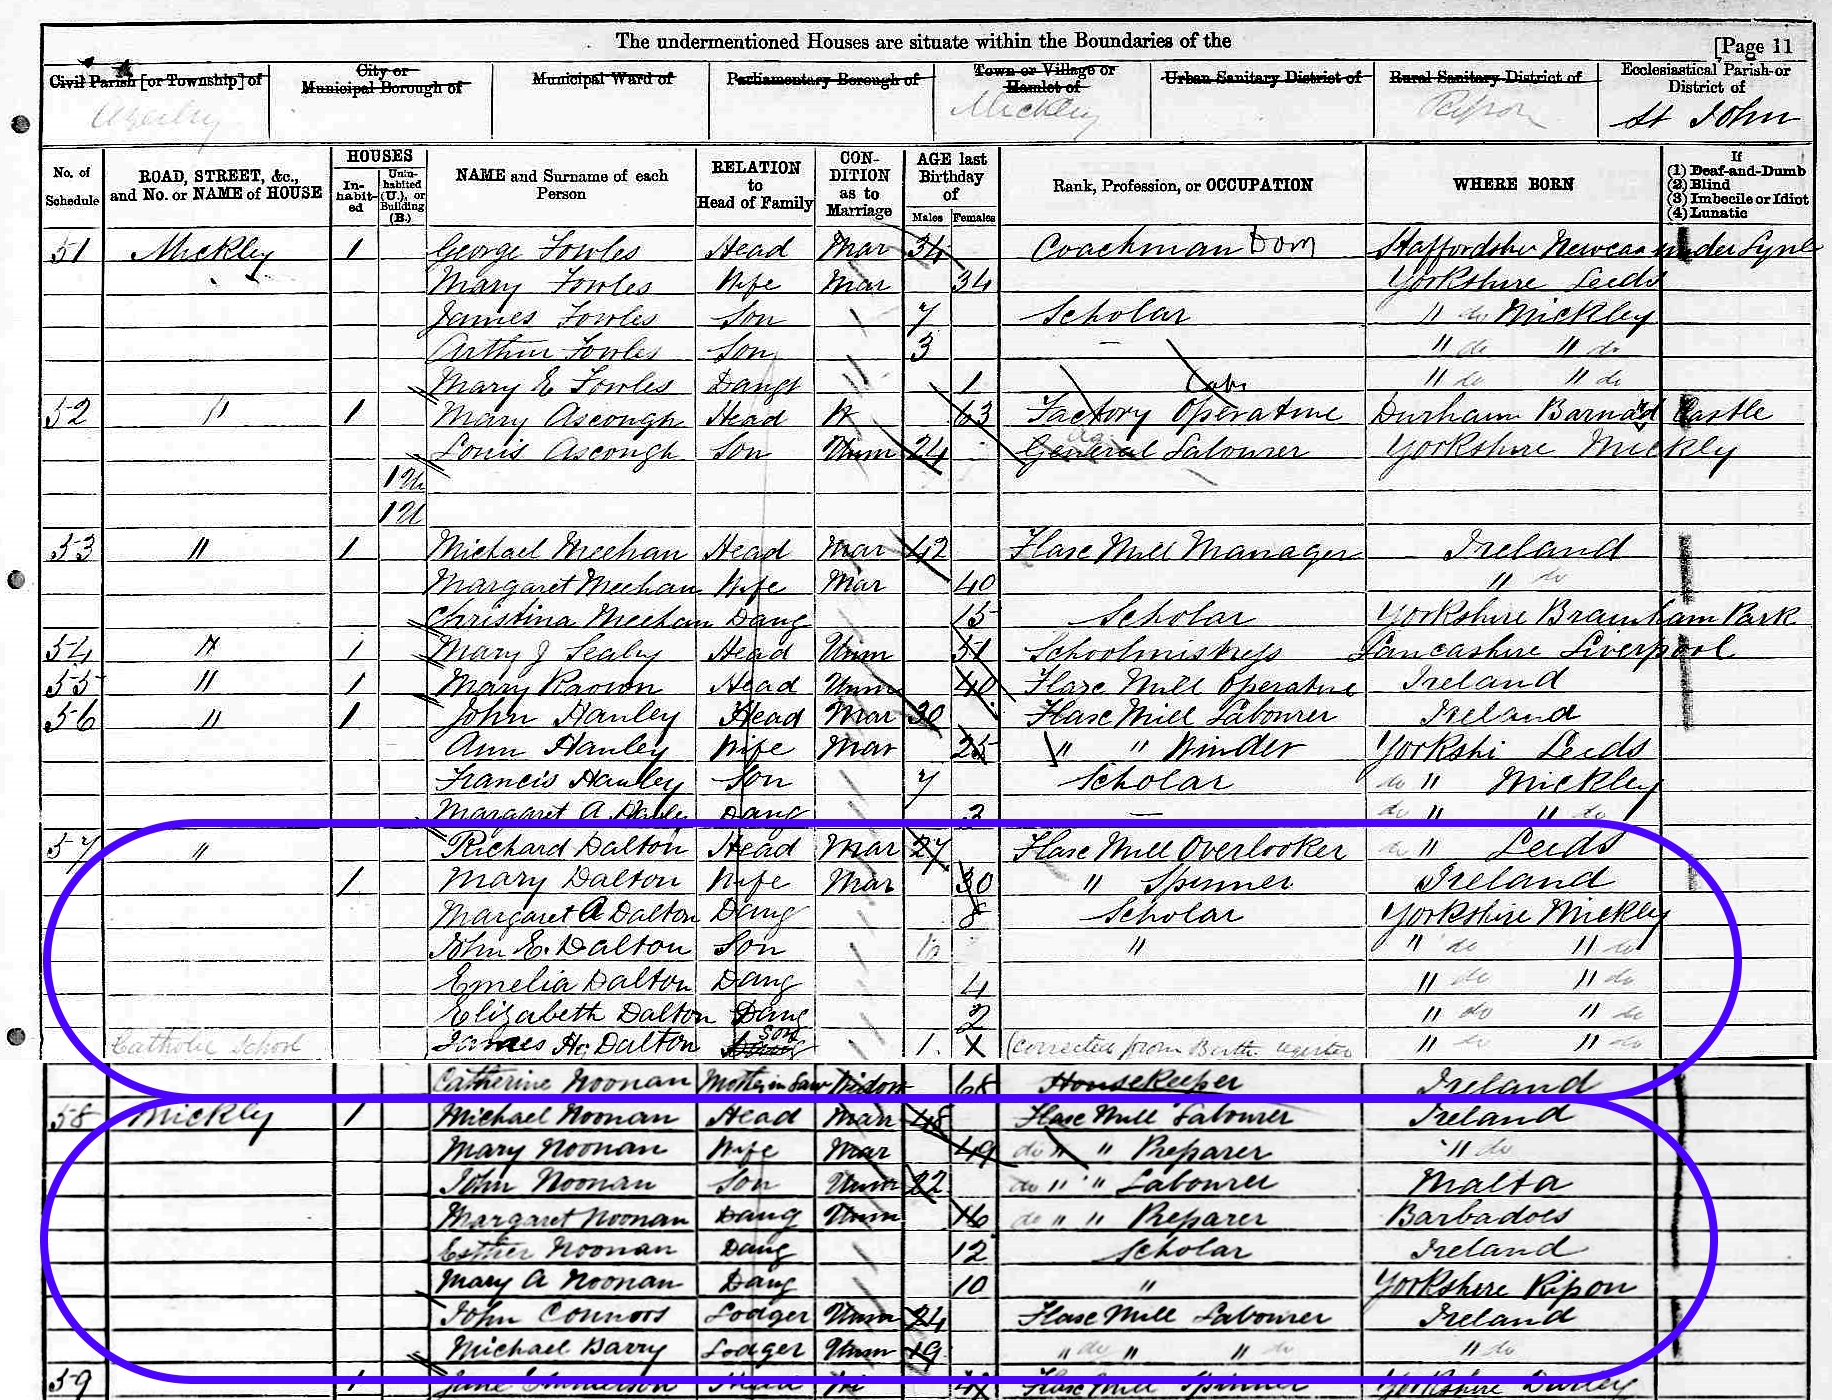 The undermentioned Houses are situate within the Boundaries of the [Page 11
Civil Parish [or Township] of City or Municipal Borough of Municipal Ward of Parliamentary Borough of Town or Village or Hamlet of Urban Sanitary District of Rural Sanitary District of Ecclesiastical Parish or District of
Azerley Mickley Ripon St John
No. of Schedule ROAD, STREET, &c., and No. or NAME of HOUSE HOUSES Inhabited Uninhabited (U.), or Building (B.) NAME and Surname of each Person RELATION to Head of Family CONDITION as to Marriage AGE last Birthday of Males Females Rank, Profession, or OCCUPATION WHERE BORN If (1) Deaf-and-Dumb (2) Blind (3) Imbecile or Idiot (4) Lunatic
51 Mickley 1 George Fowles Head Mar 34 Coachman Dom Staffordshr Newcas under Lyne
Mary Fowles Wife Mar 34 Yorkshire Leeds
James Fowles Son 7 Scholar " do Mickley
Arthur Fowles Son 3 - " do " do
Mary E Fowles Daugt 1 " do " do
52 " 1 Mary Ascough Head W 63 Factory Operative Durham Barnard Castle
Louis Ascough Son Unm 24 General Labourer Yorkshire Mickly
1U
1U
53 " 1 Michael Meehan Head Mar 42 Flax Mill Manager Ireland
Margaret Meehan Wife Mar 40 " do
Christina Meehan Daug 15 Scholar Yorkshire Bramham Park
54 " 1 Mary J Sealy Head Unm 51 Schoolmistress Lancashire Liverpool
55 " 1 Mary Head Unm 40 Flax Mill Operative Ireland
56 " 1 John Hanley Head Mar 30 Flax Mill Labourer Ireland
Ann Hanley Wife Mar 25 " " Winder Yorkshi Leeds
Francis Hanley Son 7 Scholar do " Mickley
Margaret A Hanley Daug 3 - do " " do
57 " Richard Dalton Head Mar 27 Flax Mill Overlooker do " Leeds
1 Mary Dalton Wife Mar 30 " Spinner Ireland
Margaret A Dalton Daug 8 Scholar Yorkshire Mickley
John E. Dalton Son " " do " do
Emelia Dalton Daug 4 " do " do
Elizabeth Dalton Daug 2 " do " do
Catholic School James Hy Dalton Son 1 (corrected from Birth register " do " do
Catherine Noonan Mother in Law Widow 68 Housekeeper Ireland
58 Mickly 1 Michael Noonan Head Mar 48 Flax Mill Labourer Ireland
Mary Noonan Wife Mar 49 do " " Preparer " do
John Noonan Son Unm 22 do " " Labourer Malta
Margaret Noonan Daug Unm 16 do " " Preparer Barbadoes
Esther Noonan Daug 12 Scholar Ireland
Mary A Noonan Daug 10 " Yorkshire Ripon
John Connors Lodger Unm 24 Flax Mill Labourer Ireland
Michael Barry Lodger Unm 19 " do " " do " do
59 1 Jane Emmerson Head Flax Mill Spinner Yorkshire Darley